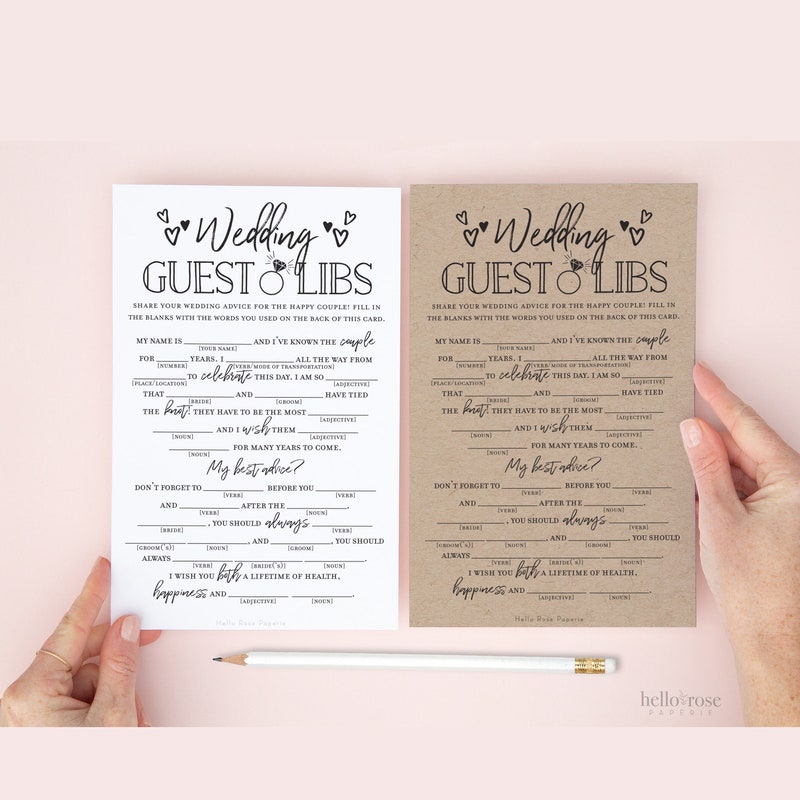 Wedding
GUEST LIBS
SHARE YOUR WEDDING ADVICE FOR THE HAPPY COUPLE! FILL IN
THE BLANKS WITH THE WORDS YOU USED ON THE BACK OF THIS CARD.
MY NAME IS ____________ AND I'VE KNOWN THE couple
[YOUR NAME]
FOR ______ YEARS. I ____________ ALL THE WAY FROM
[NUMBER] [VERB/MODE OF TRANSPORTATION]
____________ TO celebrate THIS DAY. I AM SO ____________
[PLACE/LOCATION] [ADJECTIVE]
THAT ____________ AND ____________ HAVE TIED
[BRIDE] [GROOM]
THE knot! THEY HAVE TO BE THE MOST ____________
[ADJECTIVE]
____________ AND I wish THEM ____________
[NOUN] [ADJECTIVE]
____________ FOR MANY YEARS TO COME.
[NOUN]
My best advice?
DON'T FORGET TO ____________ BEFORE YOU ____________
[VERB] [VERB]
AND ____________ AFTER THE ____________.
[VERB] [NOUN]
____________, YOU SHOULD always ____________
[BRIDE] [VERB]
____________ ____________, AND ____________, YOU SHOULD
[GROOM('S)] [NOUN] [GROOM]
ALWAYS ____________ ____________ ____________.
[VERB] [BRIDE('S)] [NOUN]
I WISH YOU both A LIFETIME OF HEALTH,
happiness AND ____________ ____________.
[ADJECTIVE] [NOUN]
Hello Rose Paperie
Wedding
GUEST LIBS
SHARE YOUR WEDDING ADVICE FOR THE HAPPY COUPLE! FILL IN
THE BLANKS WITH THE WORDS YOU USED ON THE BACK OF THIS CARD.
MY NAME IS ____________ AND I'VE KNOWN THE couple
[YOUR NAME]
FOR ______ YEARS. I ____________ ALL THE WAY FROM
[NUMBER] [VERB/MODE OF TRANSPORTATION]
____________ TO celebrate THIS DAY. I AM SO ____________
[PLACE/LOCATION] [ADJECTIVE]
THAT ____________ AND ____________ HAVE TIED
[BRIDE] [GROOM]
THE knot! THEY HAVE TO BE THE MOST ____________
[ADJECTIVE]
____________ AND I wish THEM ____________
[NOUN] [ADJECTIVE]
____________ FOR MANY YEARS TO COME.
[NOUN]
My best advice?
DON'T FORGET TO ____________ BEFORE YOU ____________
[VERB] [VERB]
AND ____________ AFTER THE ____________.
[VERB] [NOUN]
____________, YOU SHOULD always ____________
[BRIDE] [VERB]
____________ ____________, AND ____________, YOU SHOULD
[GROOM('S)] [NOUN] [GROOM]
ALWAYS ____________ ____________ ____________.
[VERB] [BRIDE('S)] [NOUN]
I WISH YOU both A LIFETIME OF HEALTH,
happiness AND ____________ ____________.
[ADJECTIVE] [NOUN]
Hello Rose Paperie
hello rose
PAPERIE